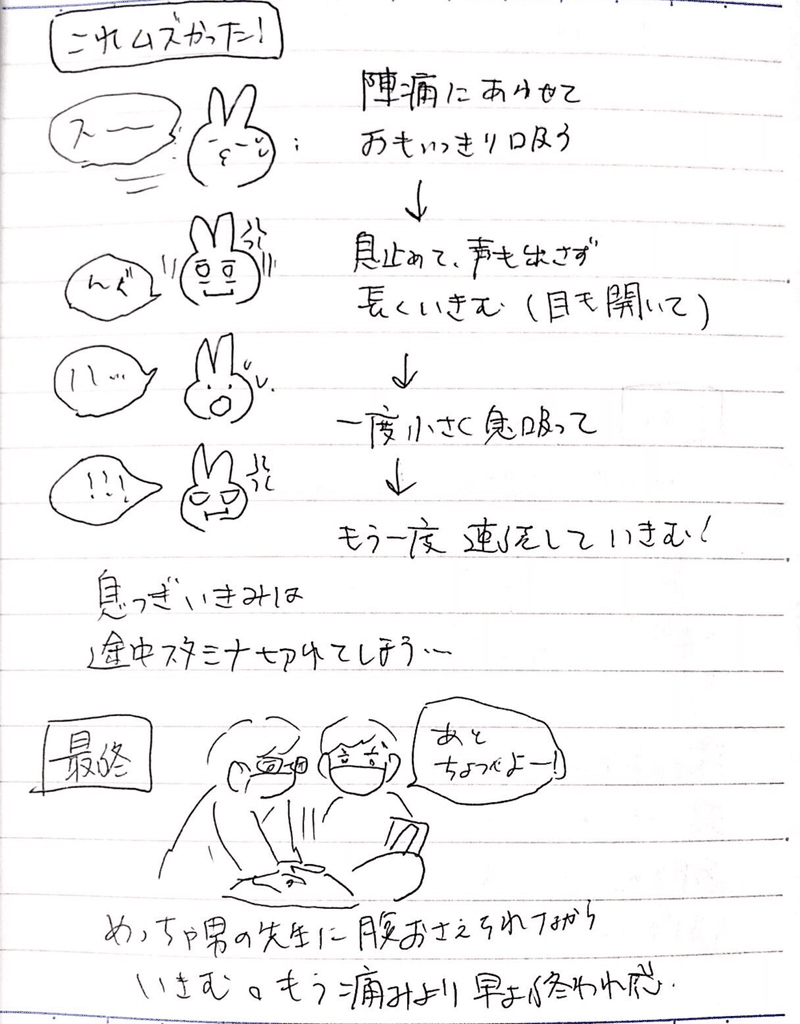 これムズかった!
スーー
陣痛にあわせて
おもいっきり吸う
↓
んぐ
息止めて、声も出さず
長くいきむ(目も開いて)
↓
ハ…
一度小さく息吸って
↓
!!!
もう一度連続していきむ!
息つぎいきみは
途中スタミナ切れてしまう…
最終
あと
ちょっとよー!
めっちゃ男の先生に腹おさえられながら
いきむ。もう痛みより早よ終われ